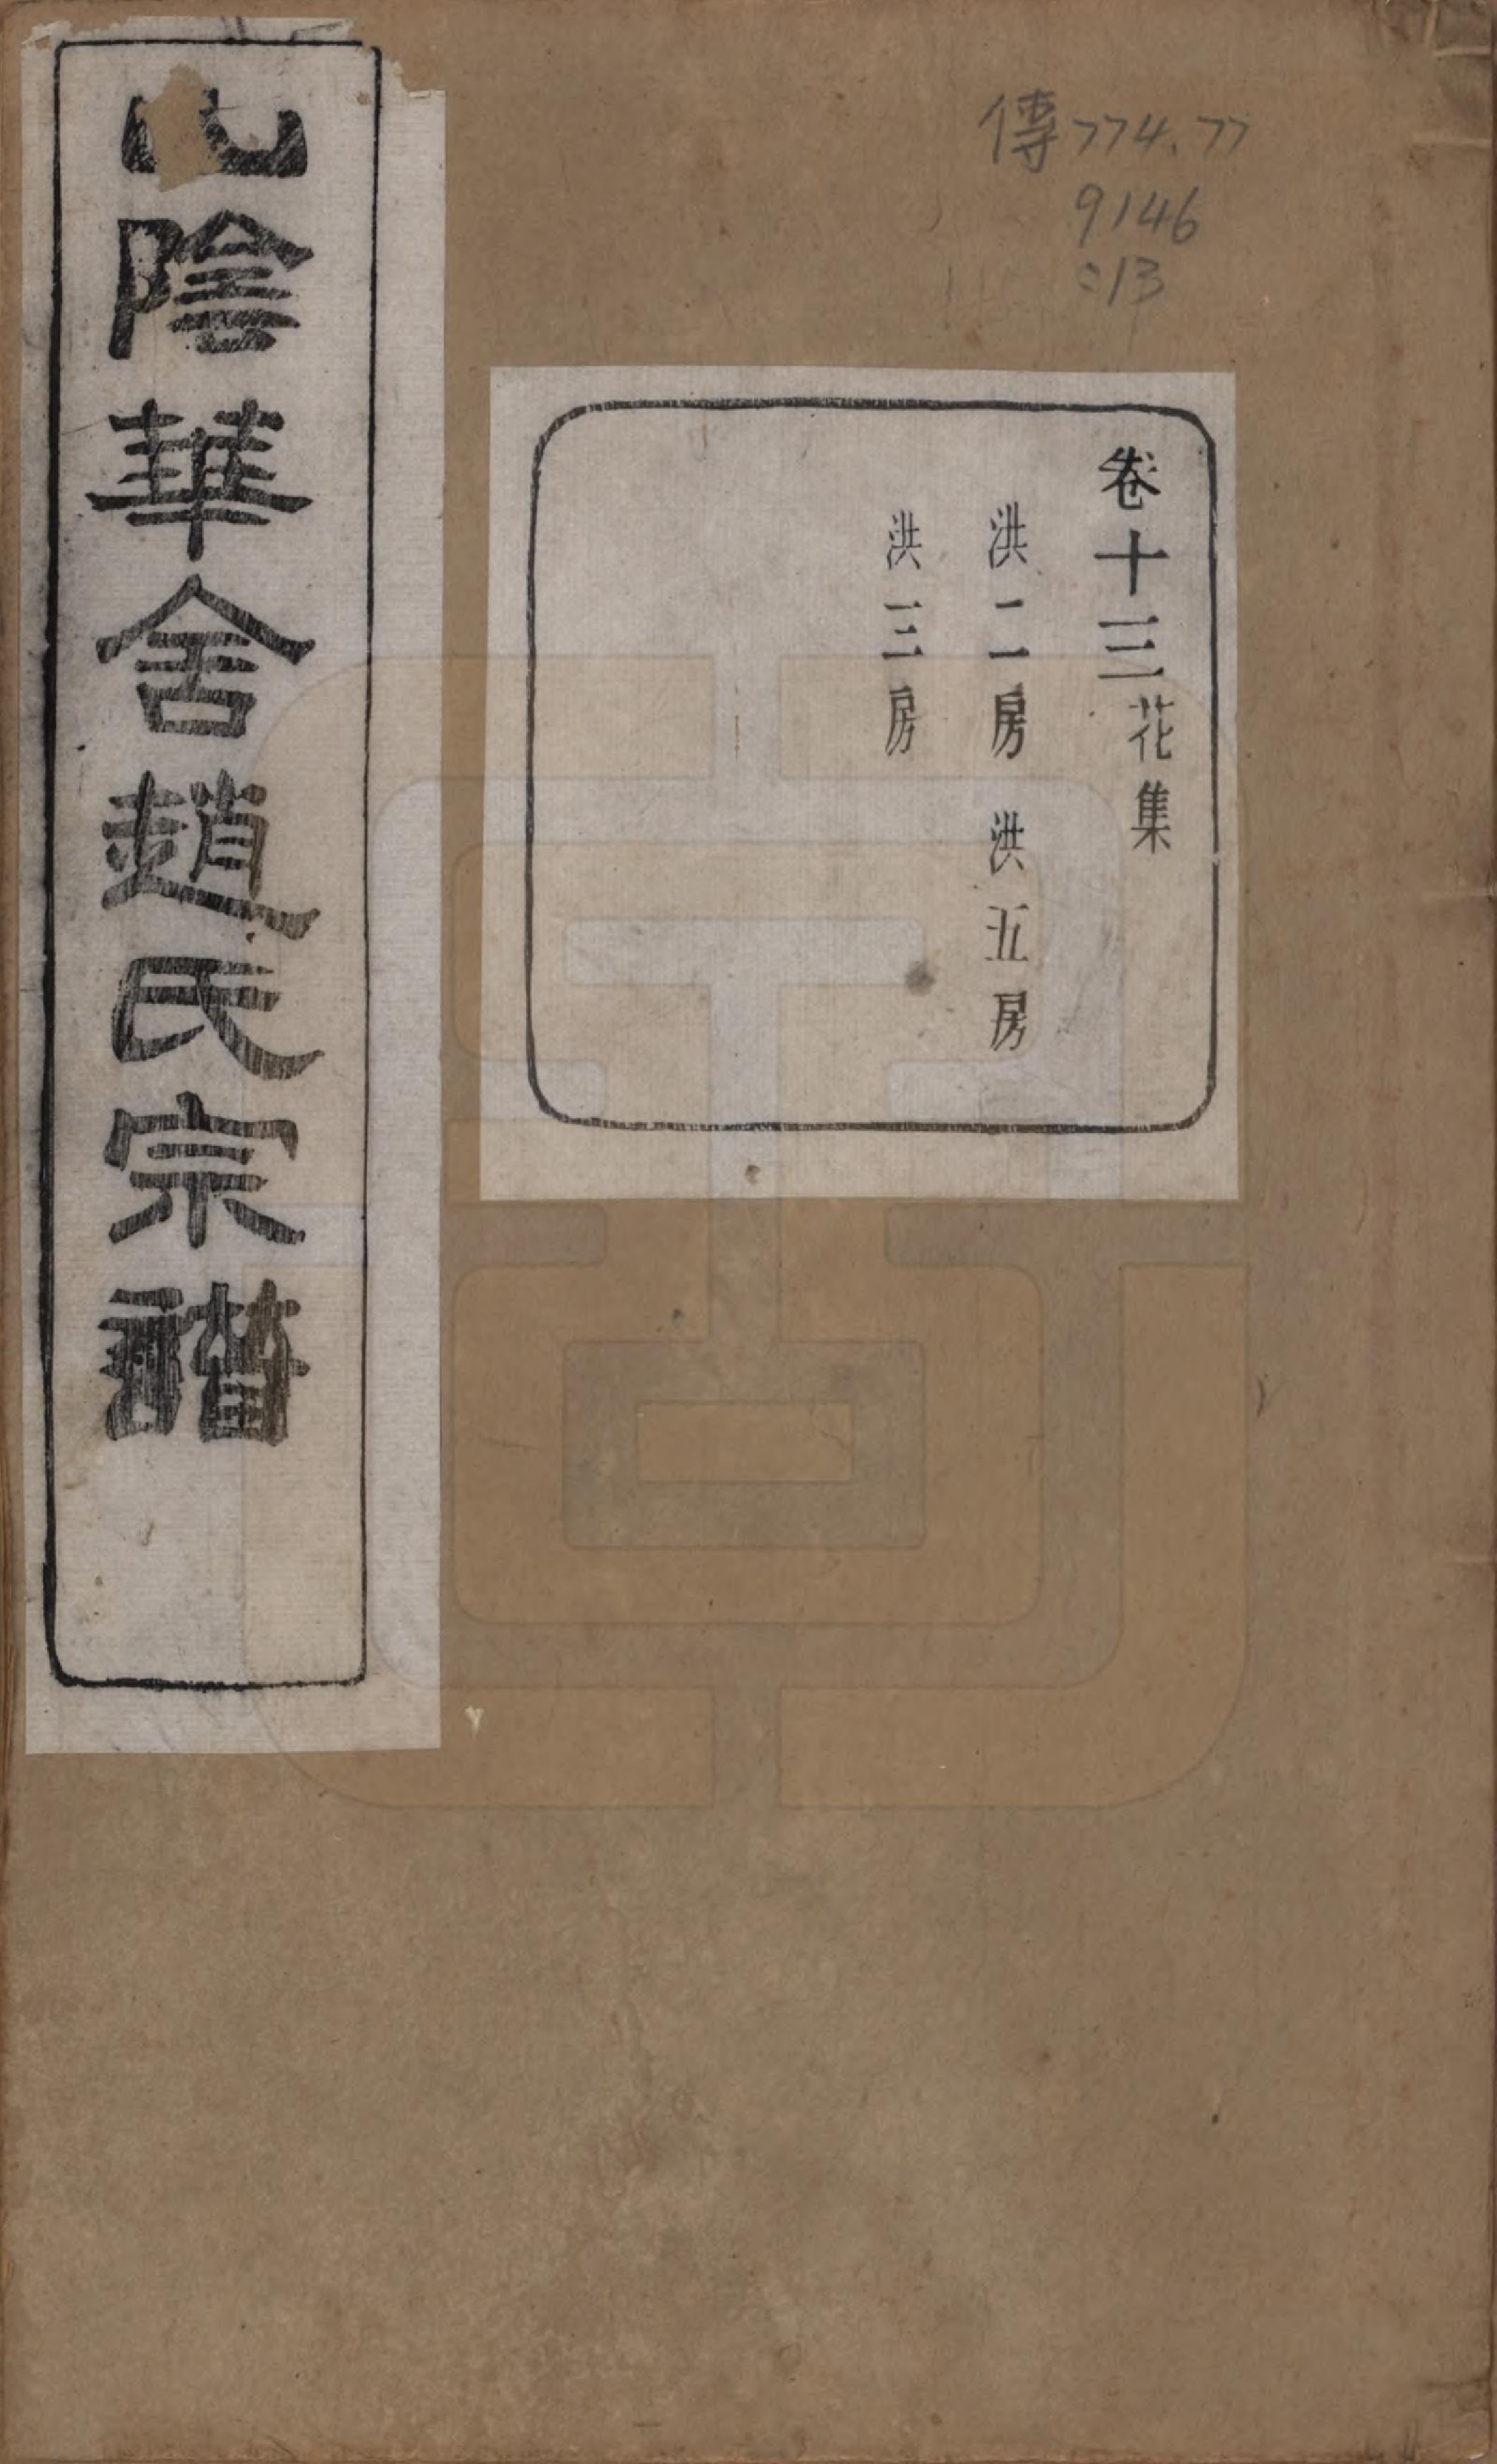 傳774.77
9146
:13
卷十三花集
洪二房 洪五房
洪三房
山陰華舍趙氏宗譜